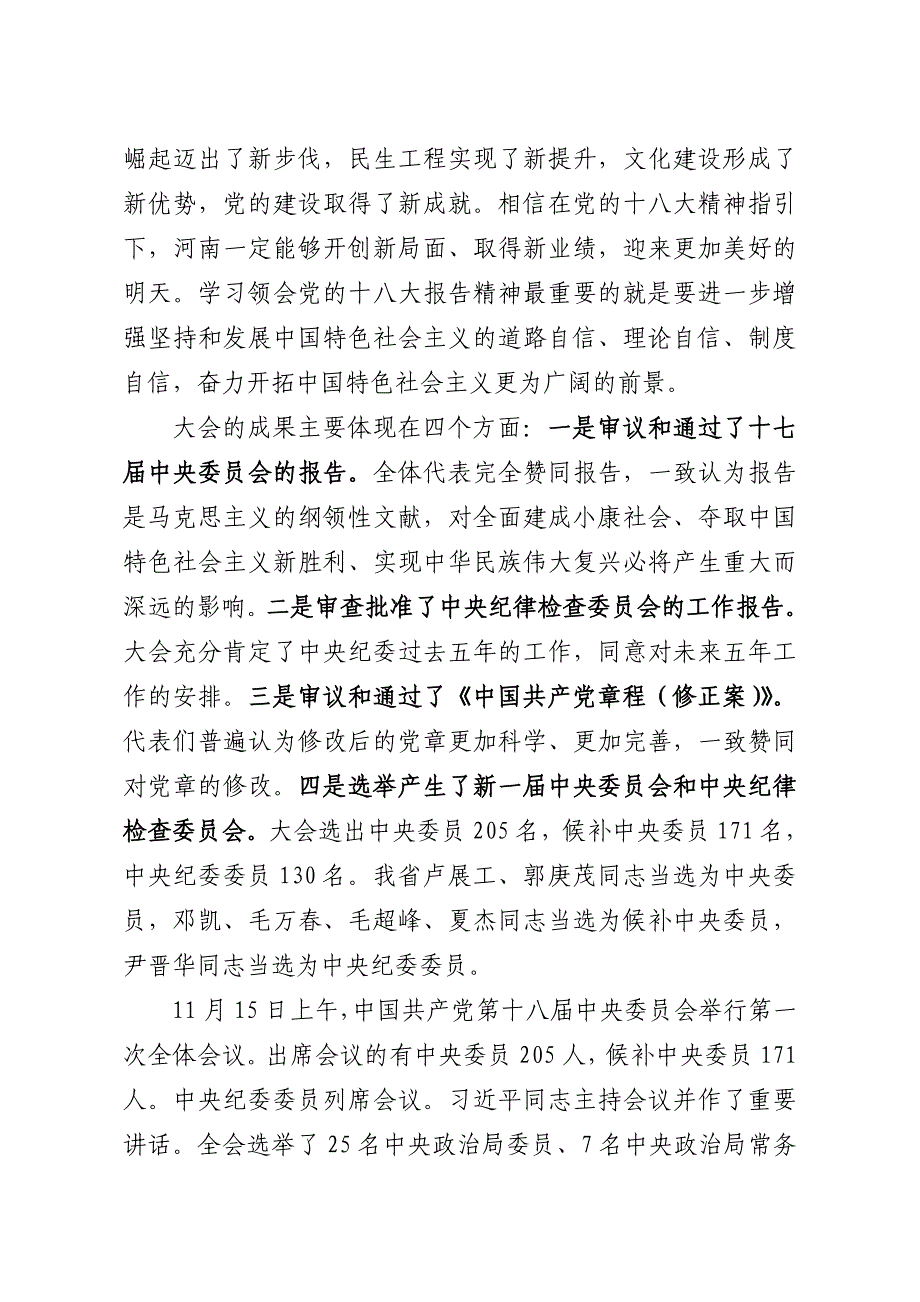 崛起迈出了新步伐，民生工程实现了新提升，文化建设形成了
新优势，党的建设取得了新成就。相信在党的十八大精神指引
下，河南一定能够开创新局面、取得新业绩，迎来更加美好的
明天。学习领会党的十八大报告精神最重要的就是要进一步增
强坚持和发展中国特色社会主义的道路自信、理论自信、制度
自信，奋力开拓中国特色社会主义更为广阔的前景。
大会的成果主要体现在四个方面：一是审议和通过了十七
届中央委员会的报告。全体代表完全赞同报告，一致认为报告
是马克思主义的纲领性文献，对全面建成小康社会、夺取中国
特色社会主义新胜利、实现中华民族伟大复兴必将产生重大而
深远的影响。二是审查批准了中央纪律检查委员会的工作报告。
大会充分肯定了中央纪委过去五年的工作，同意对未来五年工
作的安排。三是审议和通过了《中国共产党章程（修正案）》。
代表们普遍认为修改后的党章更加科学、更加完善，一致赞同
对党章的修改。四是选举产生了新一届中央委员会和中央纪律
检查委员会。大会选出中央委员 205 名，候补中央委员 171 名，
中央纪委委员 130 名。我省卢展工、郭庚茂同志当选为中央委
员，邓凯、毛万春、毛超峰、夏杰同志当选为候补中央委员，
尹晋华同志当选为中央纪委委员。
11 月 15 日上午，中国共产党第十八届中央委员会举行第一
次全体会议。出席会议的有中央委员 205 人，候补中央委员 171
人。中央纪委委员列席会议。习近平同志主持会议并作了重要
讲话。全会选举了 25 名中央政治局委员、7 名中央政治局常务